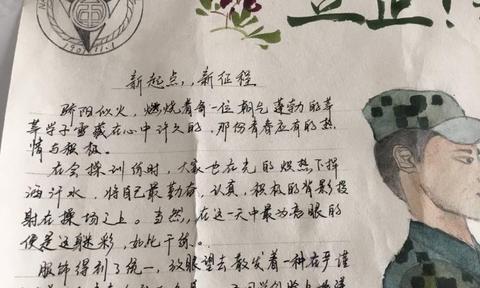 立正!
1904.11.1
新起点,,新征程
骄阳似火,燃烧着每一位朝气蓬勃的莘
莘学子雪藏在心中许久的,那份青春应有的热
情与积极。
在会操训练时,大家也在光的炽热下挥
洒汗水,将自己最勤奋,认真,积极的背影投
射在操场之上。当然,在这一天中最为亮眼的
便是这身迷彩,如此干练。
服饰得到了统一,放眼望去散发着一种庄乎谨